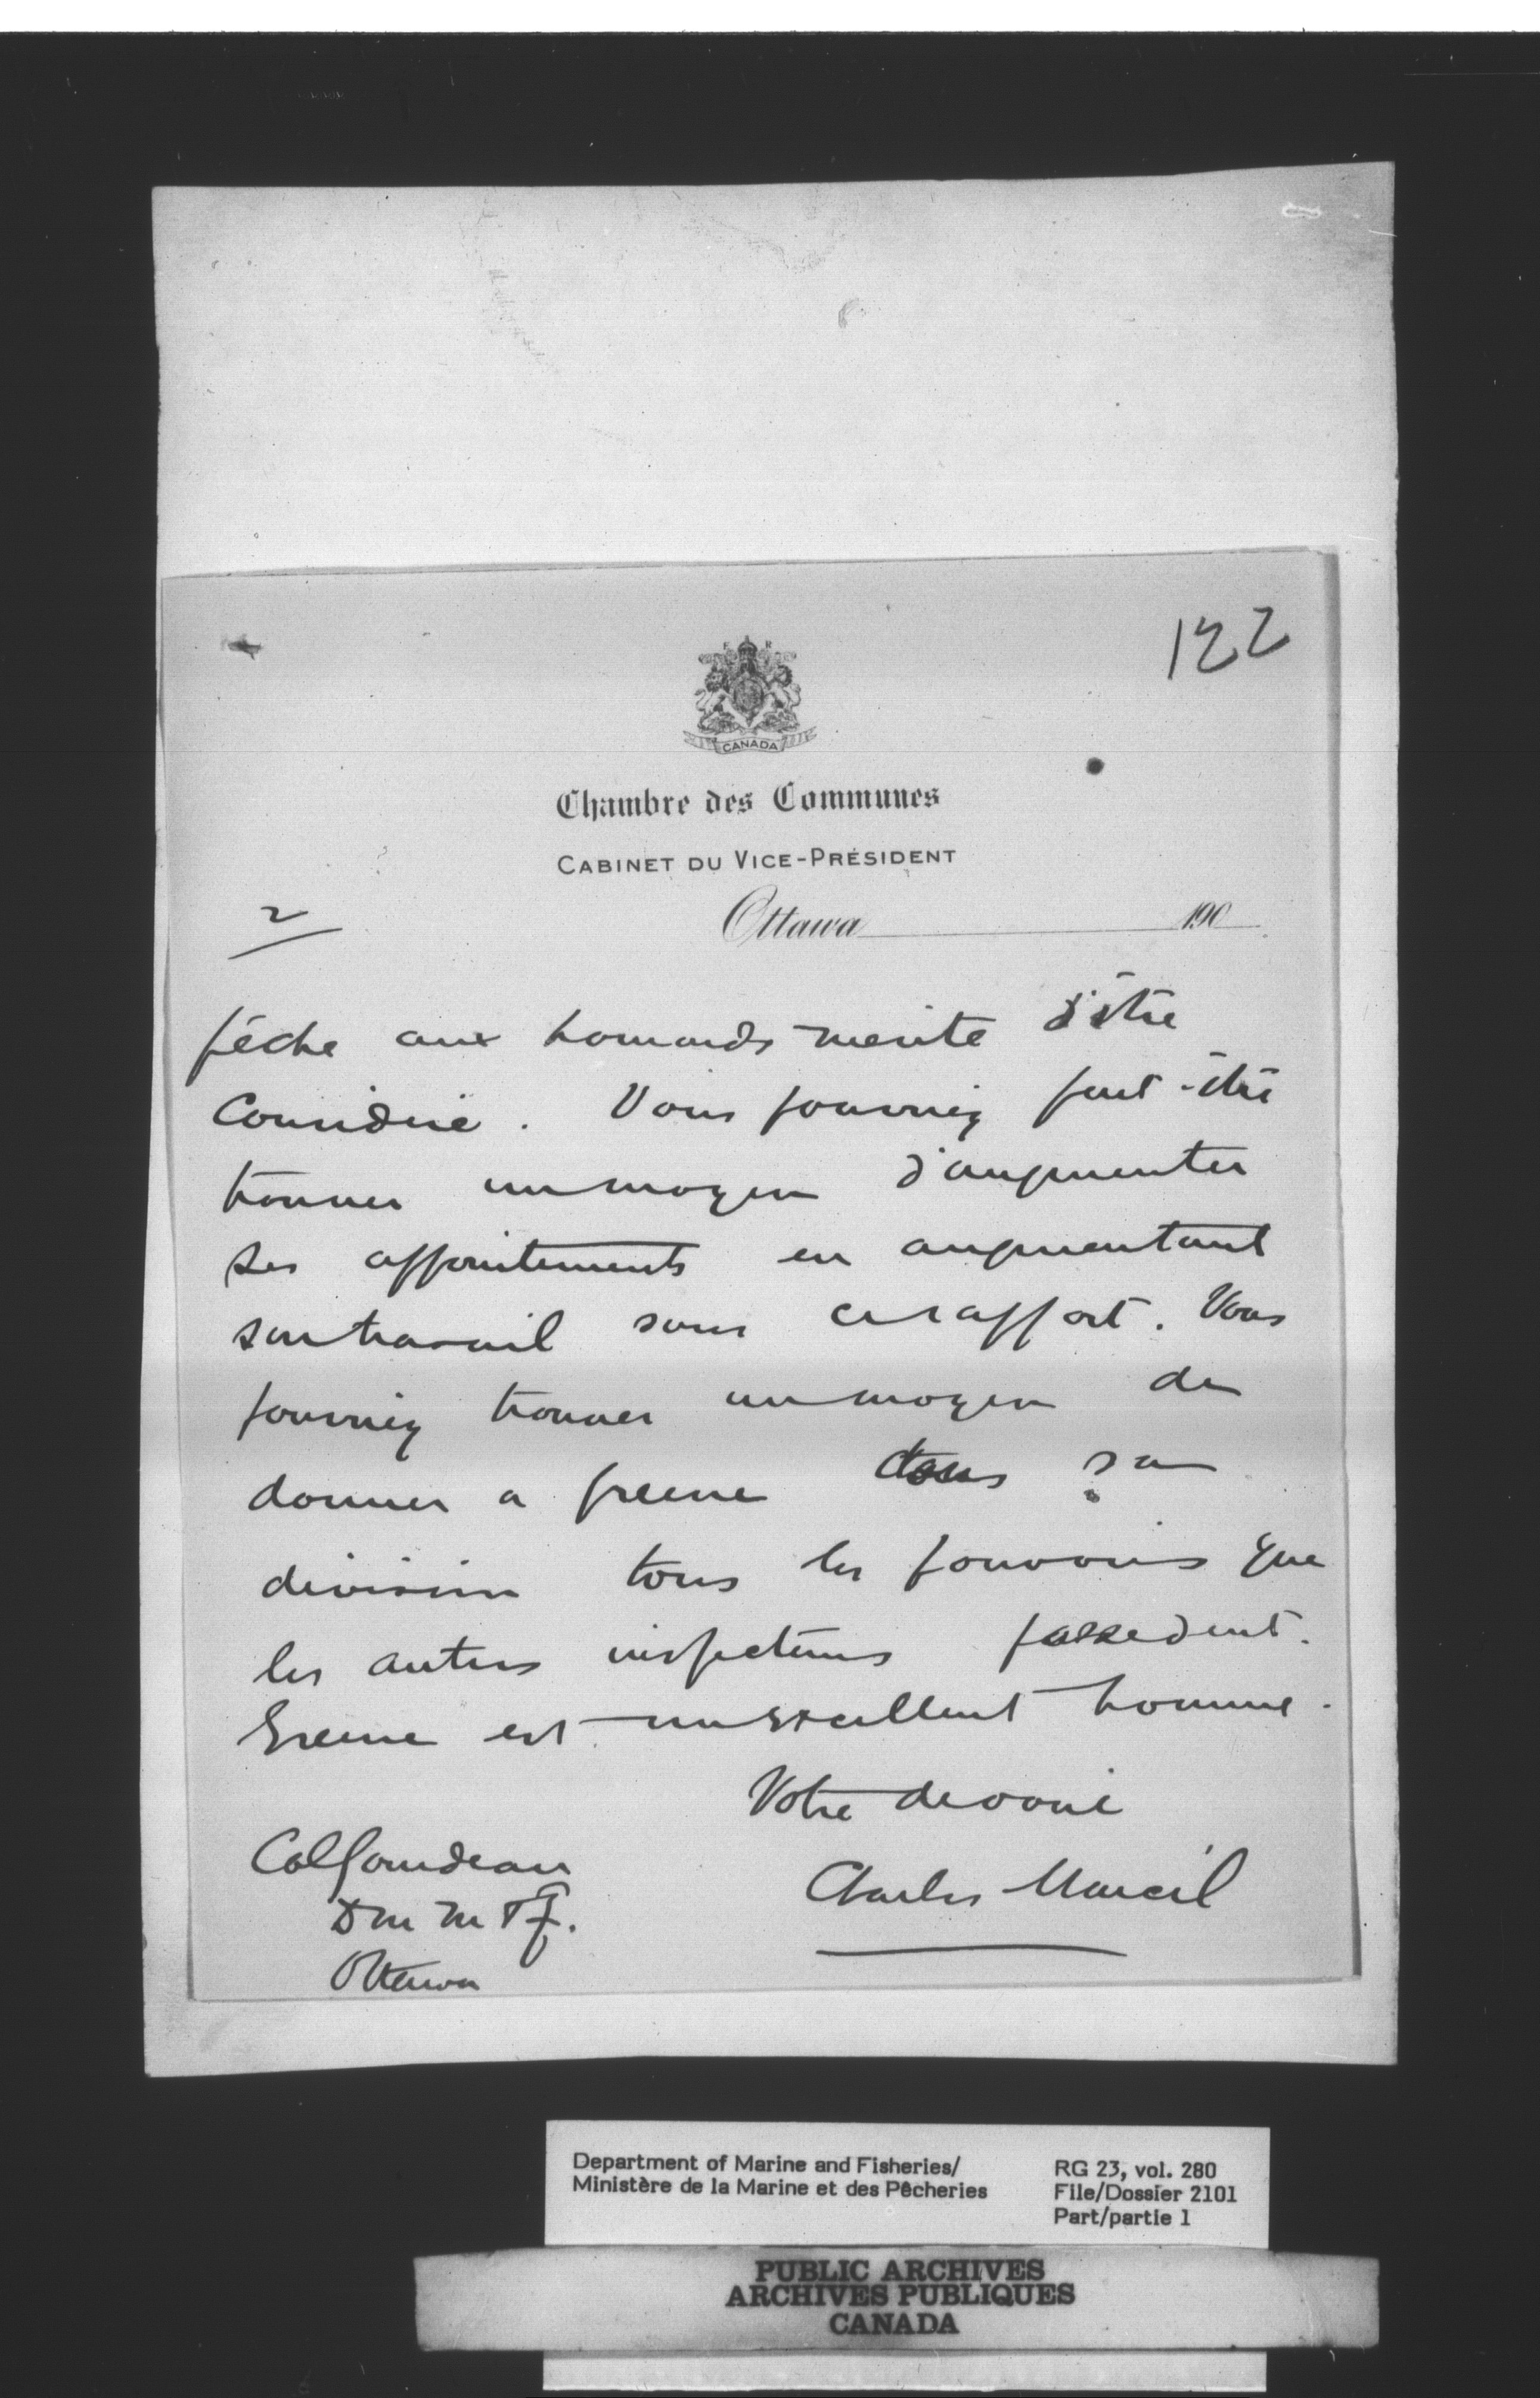 122
E R
CANADA
Chambre des Communes
CABINET DU VICE-PRÉSIDENT
Ottawa 190
2
pêche aux homards merite d'être
Considéré. Vous pourriez peut-être
trouver un moyen d'augmenter
ses appointements en augmentant
son travail sous ce rapport. Vous
pourriez trouver un moyen de
donner a Greene dans sa
division tous les pouvoirs que
les autres inspecteurs possedent.
Greene est un excellent homme.
Votre devoué
Charles Marcil
Col Gourdeau
D M M & F.
Ottawa
Department of Marine and Fisheries/
Ministère de la Marine et des Pêcheries
RG 23, vol. 280
File/Dossier 2101
Part/partie 1
PUBLIC ARCHIVES
ARCHIVES PUBLIQUES
CANADA